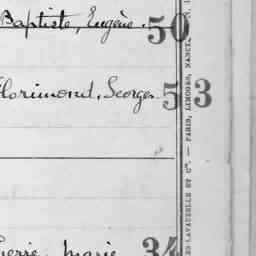 Baptiste, Eugène. 50
Florimond, Georges 53
Pierre, Marie 34
ES-LAVAUZELLE ET Cie. — PARIS, LIMOGES, NANCY. — N. 1